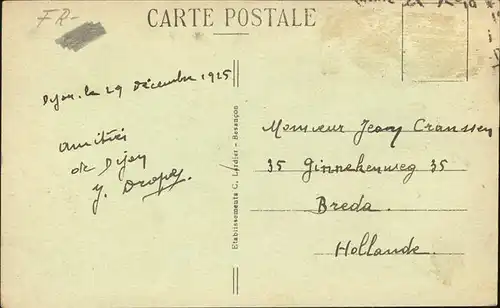 FR-
CARTE POSTALE
Dijon, le 29 Décembre 1925
amitiés
de Dijon
Y.
Etablissements C. Lardier - Besançon
Monsieur Jeany Cranssen
35 Ginnekenweg 35
Breda.
Hollande.